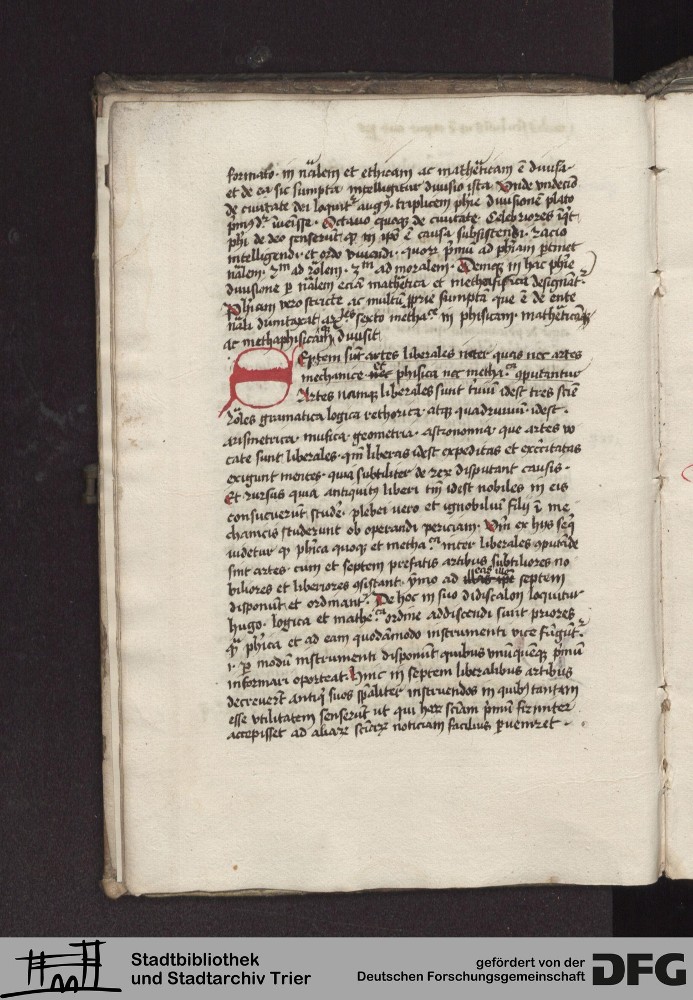 formato. in nalem et ethicam ac mathēticam ē diuisa.
et de ea sic sumpta intelligitur diuisio ista. Vnde vndecīo
de ciuitate dei loquitr augꝰ. triplicem phie diuisionē plato
inueīsse. Octauo quoqꝫ de ciuitate. Celebriores
phi de deo senserūt ꝙ in ipo ē causa subsistendi. racio
intelligendi. et ordo viuendi. quorꝫ pmū ad phiam ptinet
nalem. 2m ad rōlem. 3m ad moralem. Deniqꝫ in hac phie
diuisione p nalem eciā mathētica et methaphisica designatr
Phiam vero stricte ac multū prie sumpta que ē de ente
nāli dumtaxat sexto metha. in phisicam. mathēticamqꝫ
ac methaphisicam diuisit
Septem sūt artes liberales inter quas nec artes
mechanice. nec phisica nec metha.ca cputantur
Artes namqꝫ liberales sunt triuiū idest tres sciē
rōles gramatica logica rethorica. atqꝫ quadruuiū. idest.
arismetrica. musica. geometria. astronomia. que artes vo
cate sunt liberales. qm liberas idest expeditas et exercitatas
exigunt mentes. quia subtiliter de reꝝ disputant causis.
Et rursus quia antiquitꝰ liberi tm idest nobiles in eis
consueuerūt studē. plebei uero et ignobiliū filij ī me
chanicis studerunt ob operandi periciam. Vm ex hijs seq
uidetur ꝙ phica quoqꝫ et metha.ca inter liberales cputāde
sint artes. cum et septem prefatis artibus subtiliores no
biliores et liberiores existant. ymo ad septem
disponūt et ordinantr. De hoc in suo didiscalon loquitur
hugo. logica et mathe.ca ordine addiscendi sunt priores
phica et ad eam quodāmodo instrumenti vice fūgūtr.
i. p modū instrumenti disponūt quibus vnūquemqꝫ pmū
informari oporteat. Hinc in septem liberalibus artibus
decreuerūt antiqi suos spaliter instruendos in quibꝰ tantam
esse vtilitatem senserūt ut qui haꝝ sciam pmū firmiter
accepisset ad aliaꝝ sciaꝝ noticiam facilius pueniret.
Stadtbibliothek
und Stadtarchiv Trier
gefördert von der
Deutschen Forschungsgemeinschaft
DFG